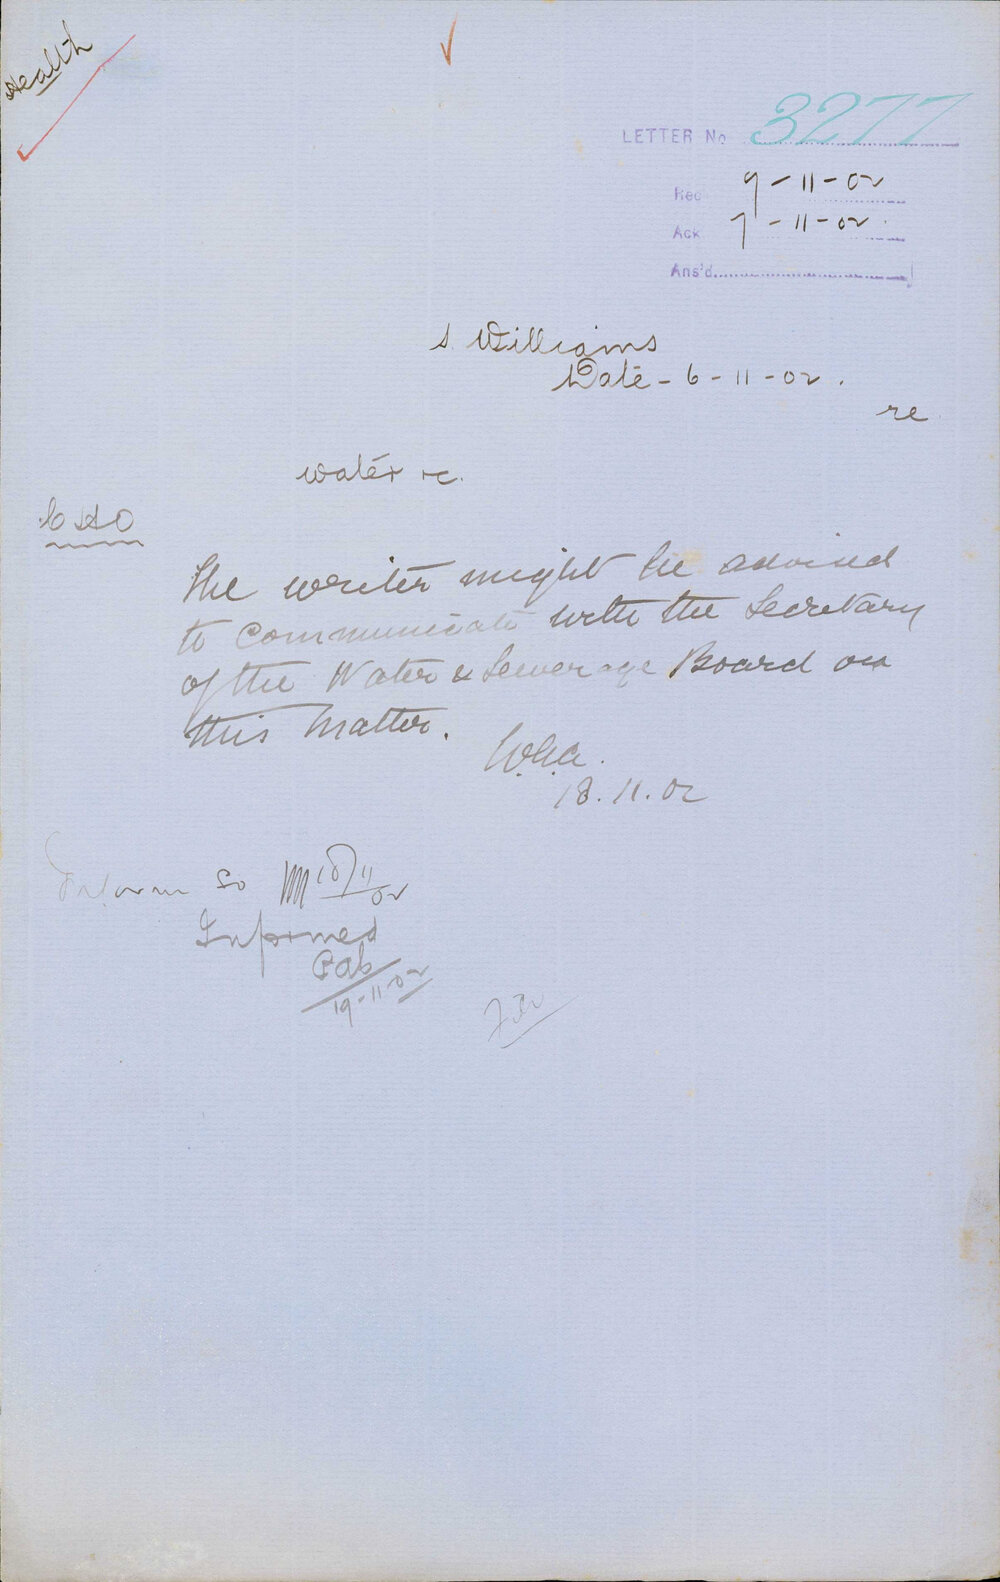 Health
LETTER No 3277
Rec 7-11-02
Ack 7-11-02
Ans'd
S. Williams
Date - 6-11-02.
re
water &c.
CHO
The writer might be advised
to communicate with the Secretary
of the Water & Sewerage Board on
this matter.
18.11.02
Inform so 18/11/02
Informed
19-11-02
File